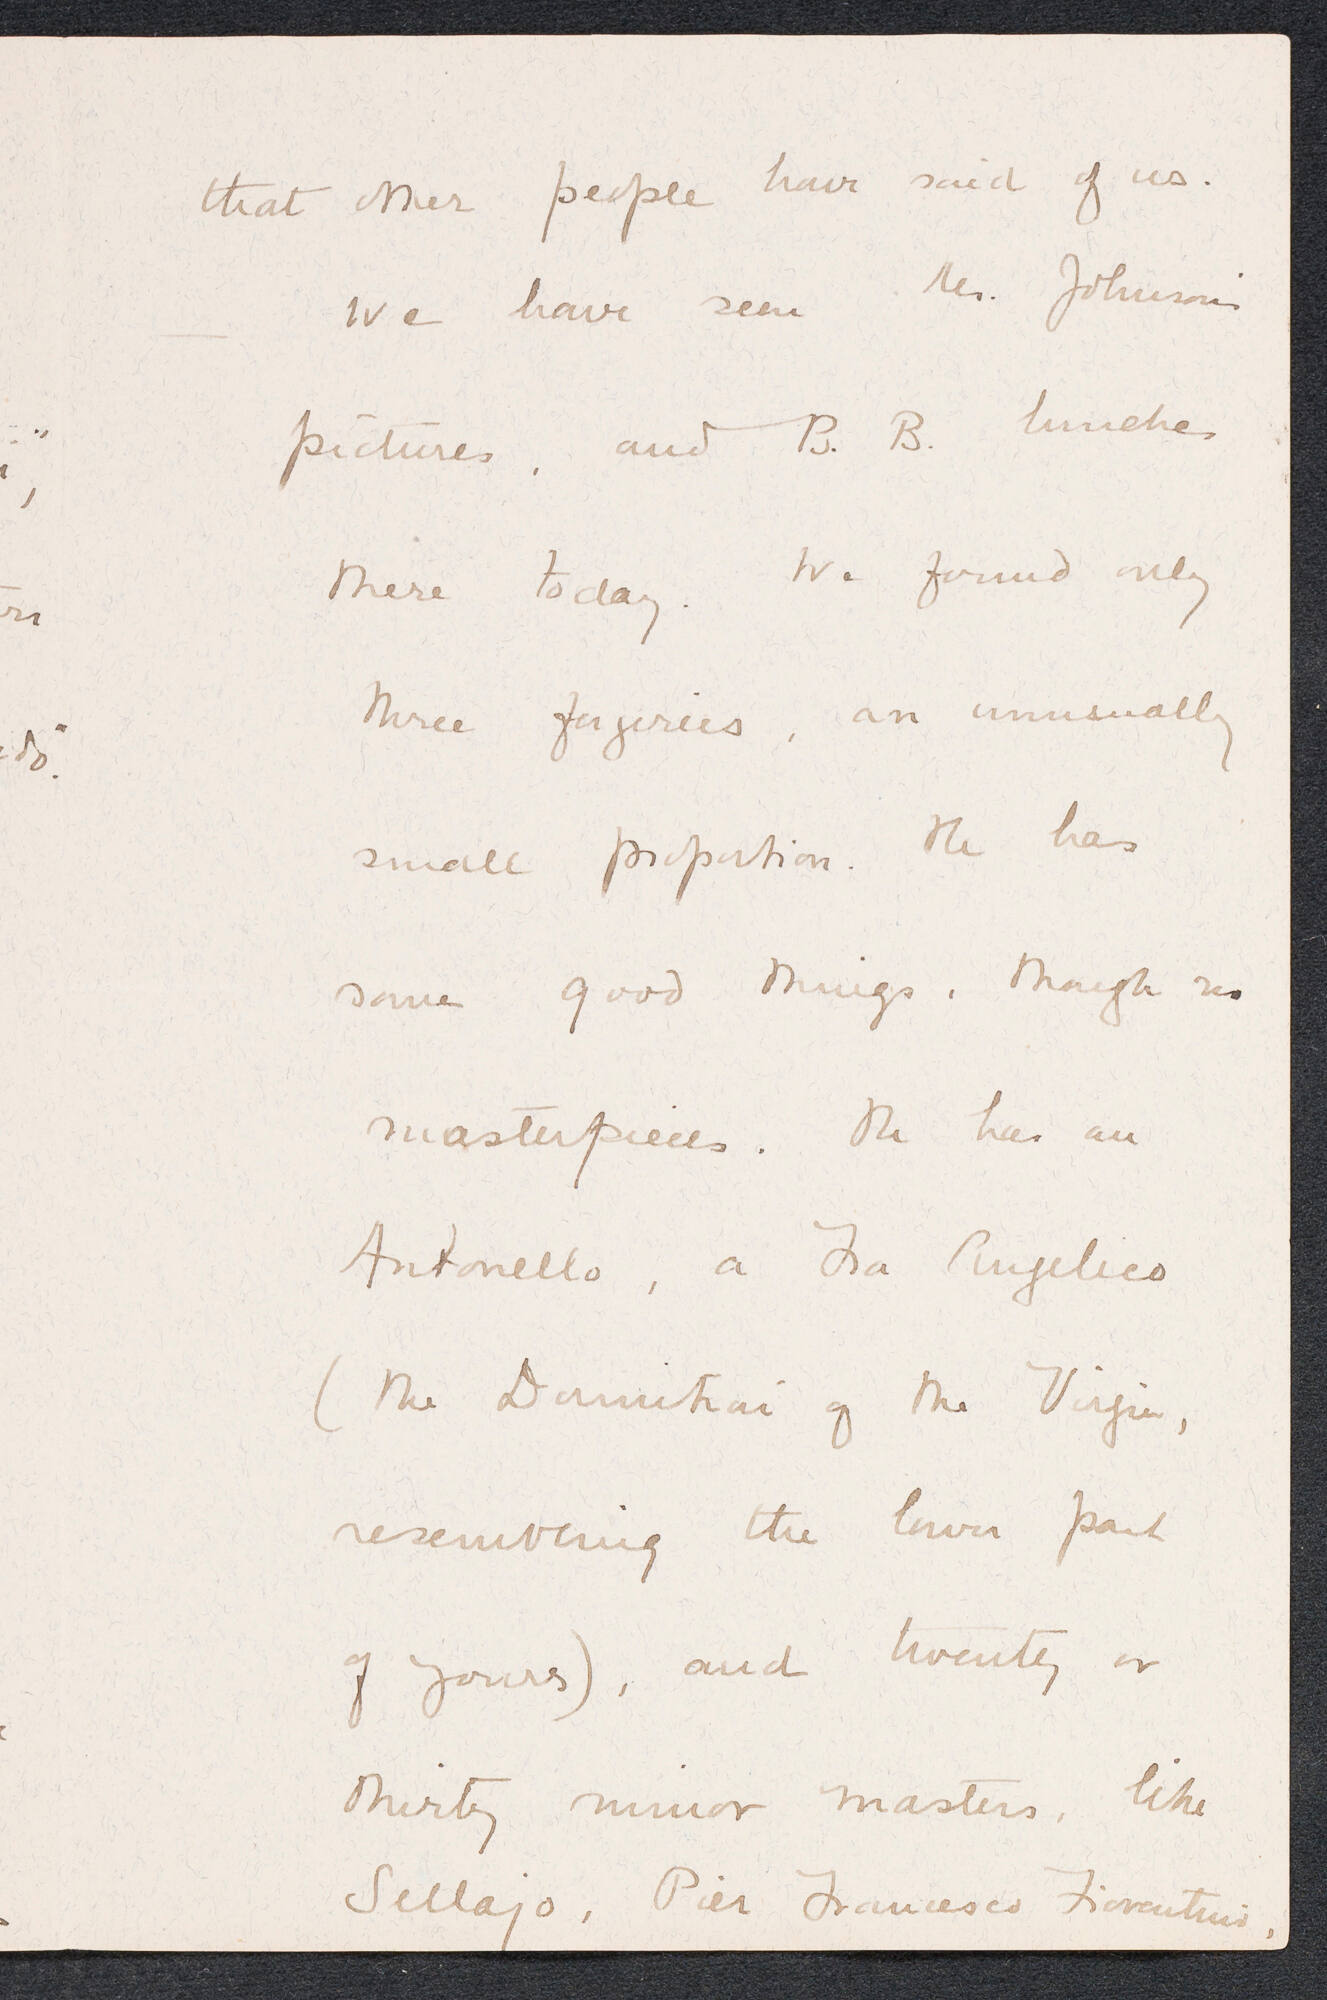 that other people have said of us.
We have seen Mr. Johnson's
pictures, and B. B. lunches
there today. We found only
three forgeries, an unusually
small proportion. He has
some good things, though no
masterpieces. He has an
Antonello, a Fra Angelico
(the Dormition of the Virgin,
resembling the lower part
of yours), and twenty or
thirty minor masters, like
Sellajo, Pier Francesco Fiorentino,